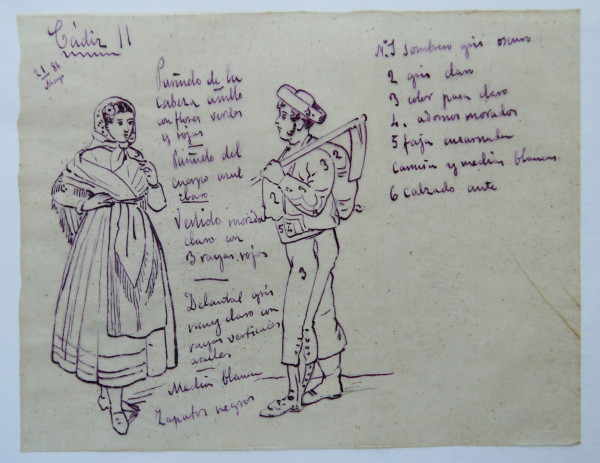 Cádiz 11
21
86
Pañuelo de la
cabeza
con flores verdes
y rojas
Pañuelo del
cuerpo azul
claro
Vestido morado
claro con
3 rayas rojas
Delantal gris
muy claro con
rayas verticales
azules
Medias blancas
Zapatos negros
2
2
2
3
5
4
3
6
Nº 1 Sombrero gris oscuro
2 gris claro
3 color pasa claro
4. adornos morados
5 faja encarnada
Camisa y medias blancas
6 Calzado ante